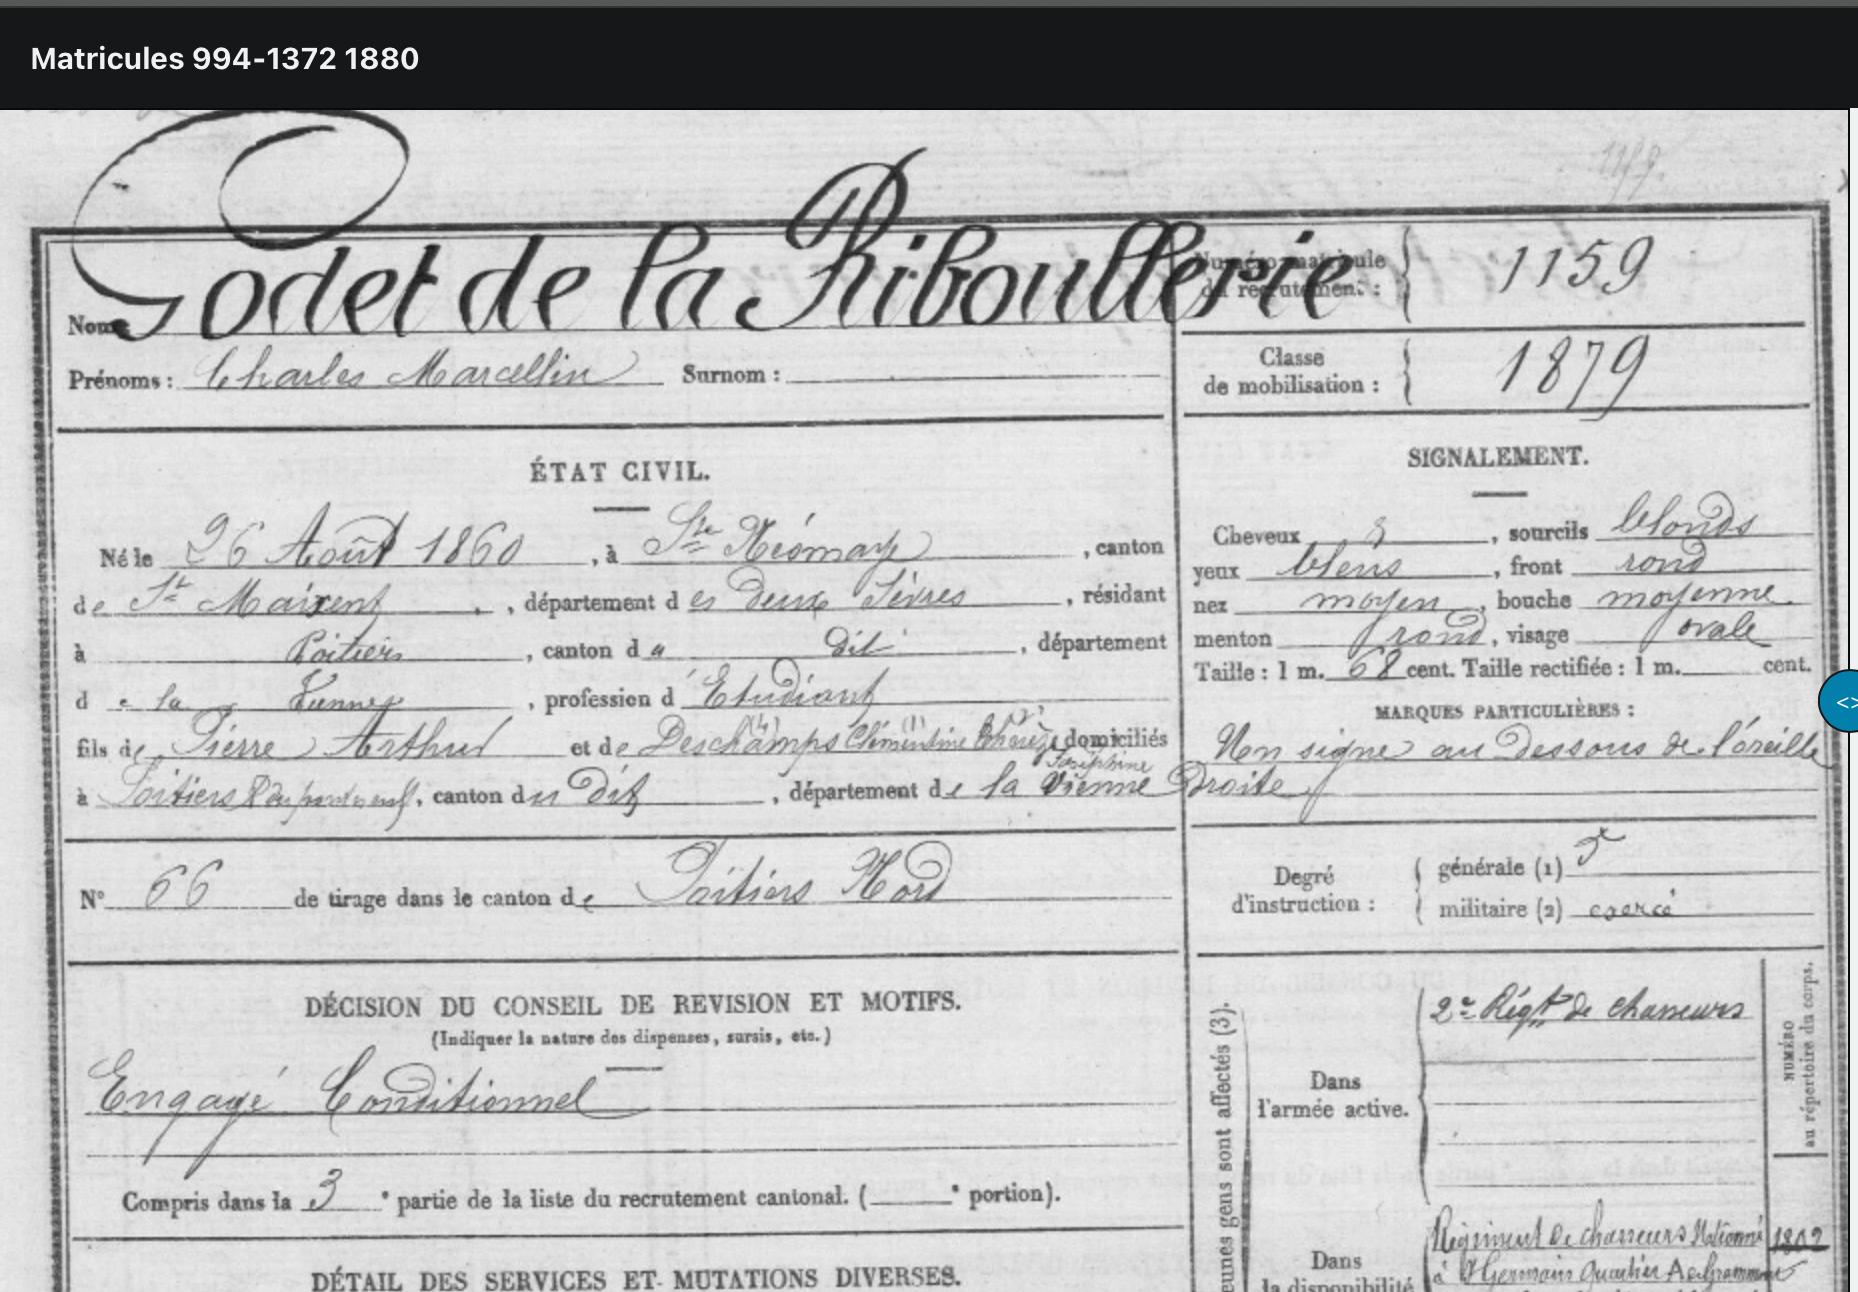 Matricules 994-1372 1880
1159.
Nom Godet de la Riboullerie
Numéro matricule du recrutement : 1159
Prénoms : Charles Marcellin Surnom :
Classe de mobilisation : 1879
ÉTAT CIVIL.
Né le 26 Août 1860, à Ste Néomaye, canton
de St Maixent, département des deux Sèvres, résidant
à Poitiers, canton du dit, département
de la Vienne, profession d'Etudiant
fils de Pierre Arthur et de Deschamps (4) Clémentine (1) Thérèse (2) Joséphine domiciliés
à Poitiers R du pont neuf, canton du dit, département de la Vienne
N° 66 de tirage dans le canton de Poitiers Nord
DÉCISION DU CONSEIL DE REVISION ET MOTIFS.
(Indiquer la nature des dispenses, sursis, etc.)
Engagé Conditionnel
Compris dans la 3e partie de la liste du recrutement cantonal. ( e portion).
DÉTAIL DES SERVICES ET MUTATIONS DIVERSES.
SIGNALEMENT.
Cheveux &, sourcils blonds
yeux bleus, front rond
nez moyen, bouche moyenne
menton rond, visage ovale
Taille : 1 m. 68 cent. Taille rectifiée : 1 m. cent.
MARQUES PARTICULIÈRES :
Un signe au dessous de l'oreille
Droite
Degré d'instruction :
générale (1) 5
militaire (2) exercé
eunes gens sont affectés (3).
Dans l'armée active.
2e Régt de chasseurs
NUMÉRO au répertoire du corps.
Dans la disponibilité
Régiment de chasseurs Stationné 1802
à St Germain Quartier